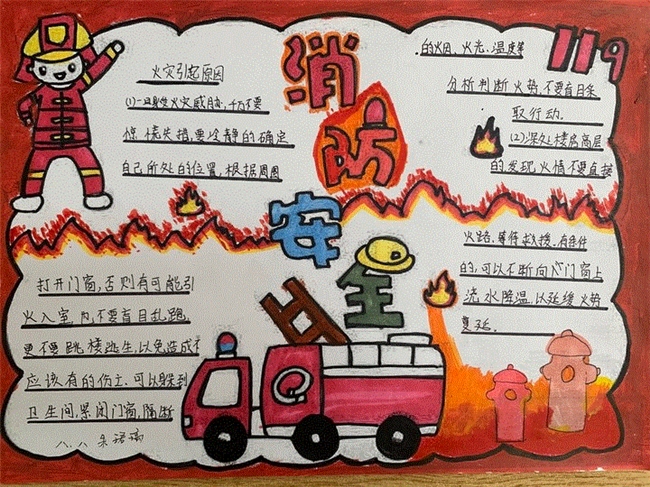 消防安全
119
火灾引起原因
(1)一旦发生火灾威胁,千万不要
惊慌失措,要冷静的确定
自己所处的位置,根据周围
的烟、火光、温度等
分析判断火势,不要盲目采
取行动.
(2)深处楼房高层
的发现火情不要直接
打开门窗,否则有可能引
火入室内,不要盲目乱跑,
更不要跳楼逃生,以免造成不
应该有的伤亡.可以躲到
卫生间,紧闭门窗,隔断
火路,等待救援.有条件
的,可以不断向门窗上
浇水降温,以延缓火势
蔓延.